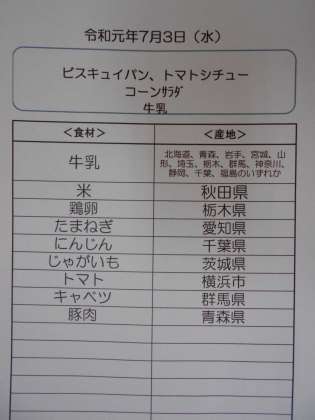 令和元年7月3日（水）
ビスキュイパン、トマトシチュー
コーンサラダ
牛乳
＜食材＞ ＜産地＞
牛乳 北海道、青森、岩手、宮城、山
形、埼玉、栃木、群馬、神奈川、
静岡、千葉、福島のいずれか
米 秋田県
鶏卵 栃木県
たまねぎ 愛知県
にんじん 千葉県
じゃがいも 茨城県
トマト 横浜市
キャベツ 群馬県
豚肉 青森県